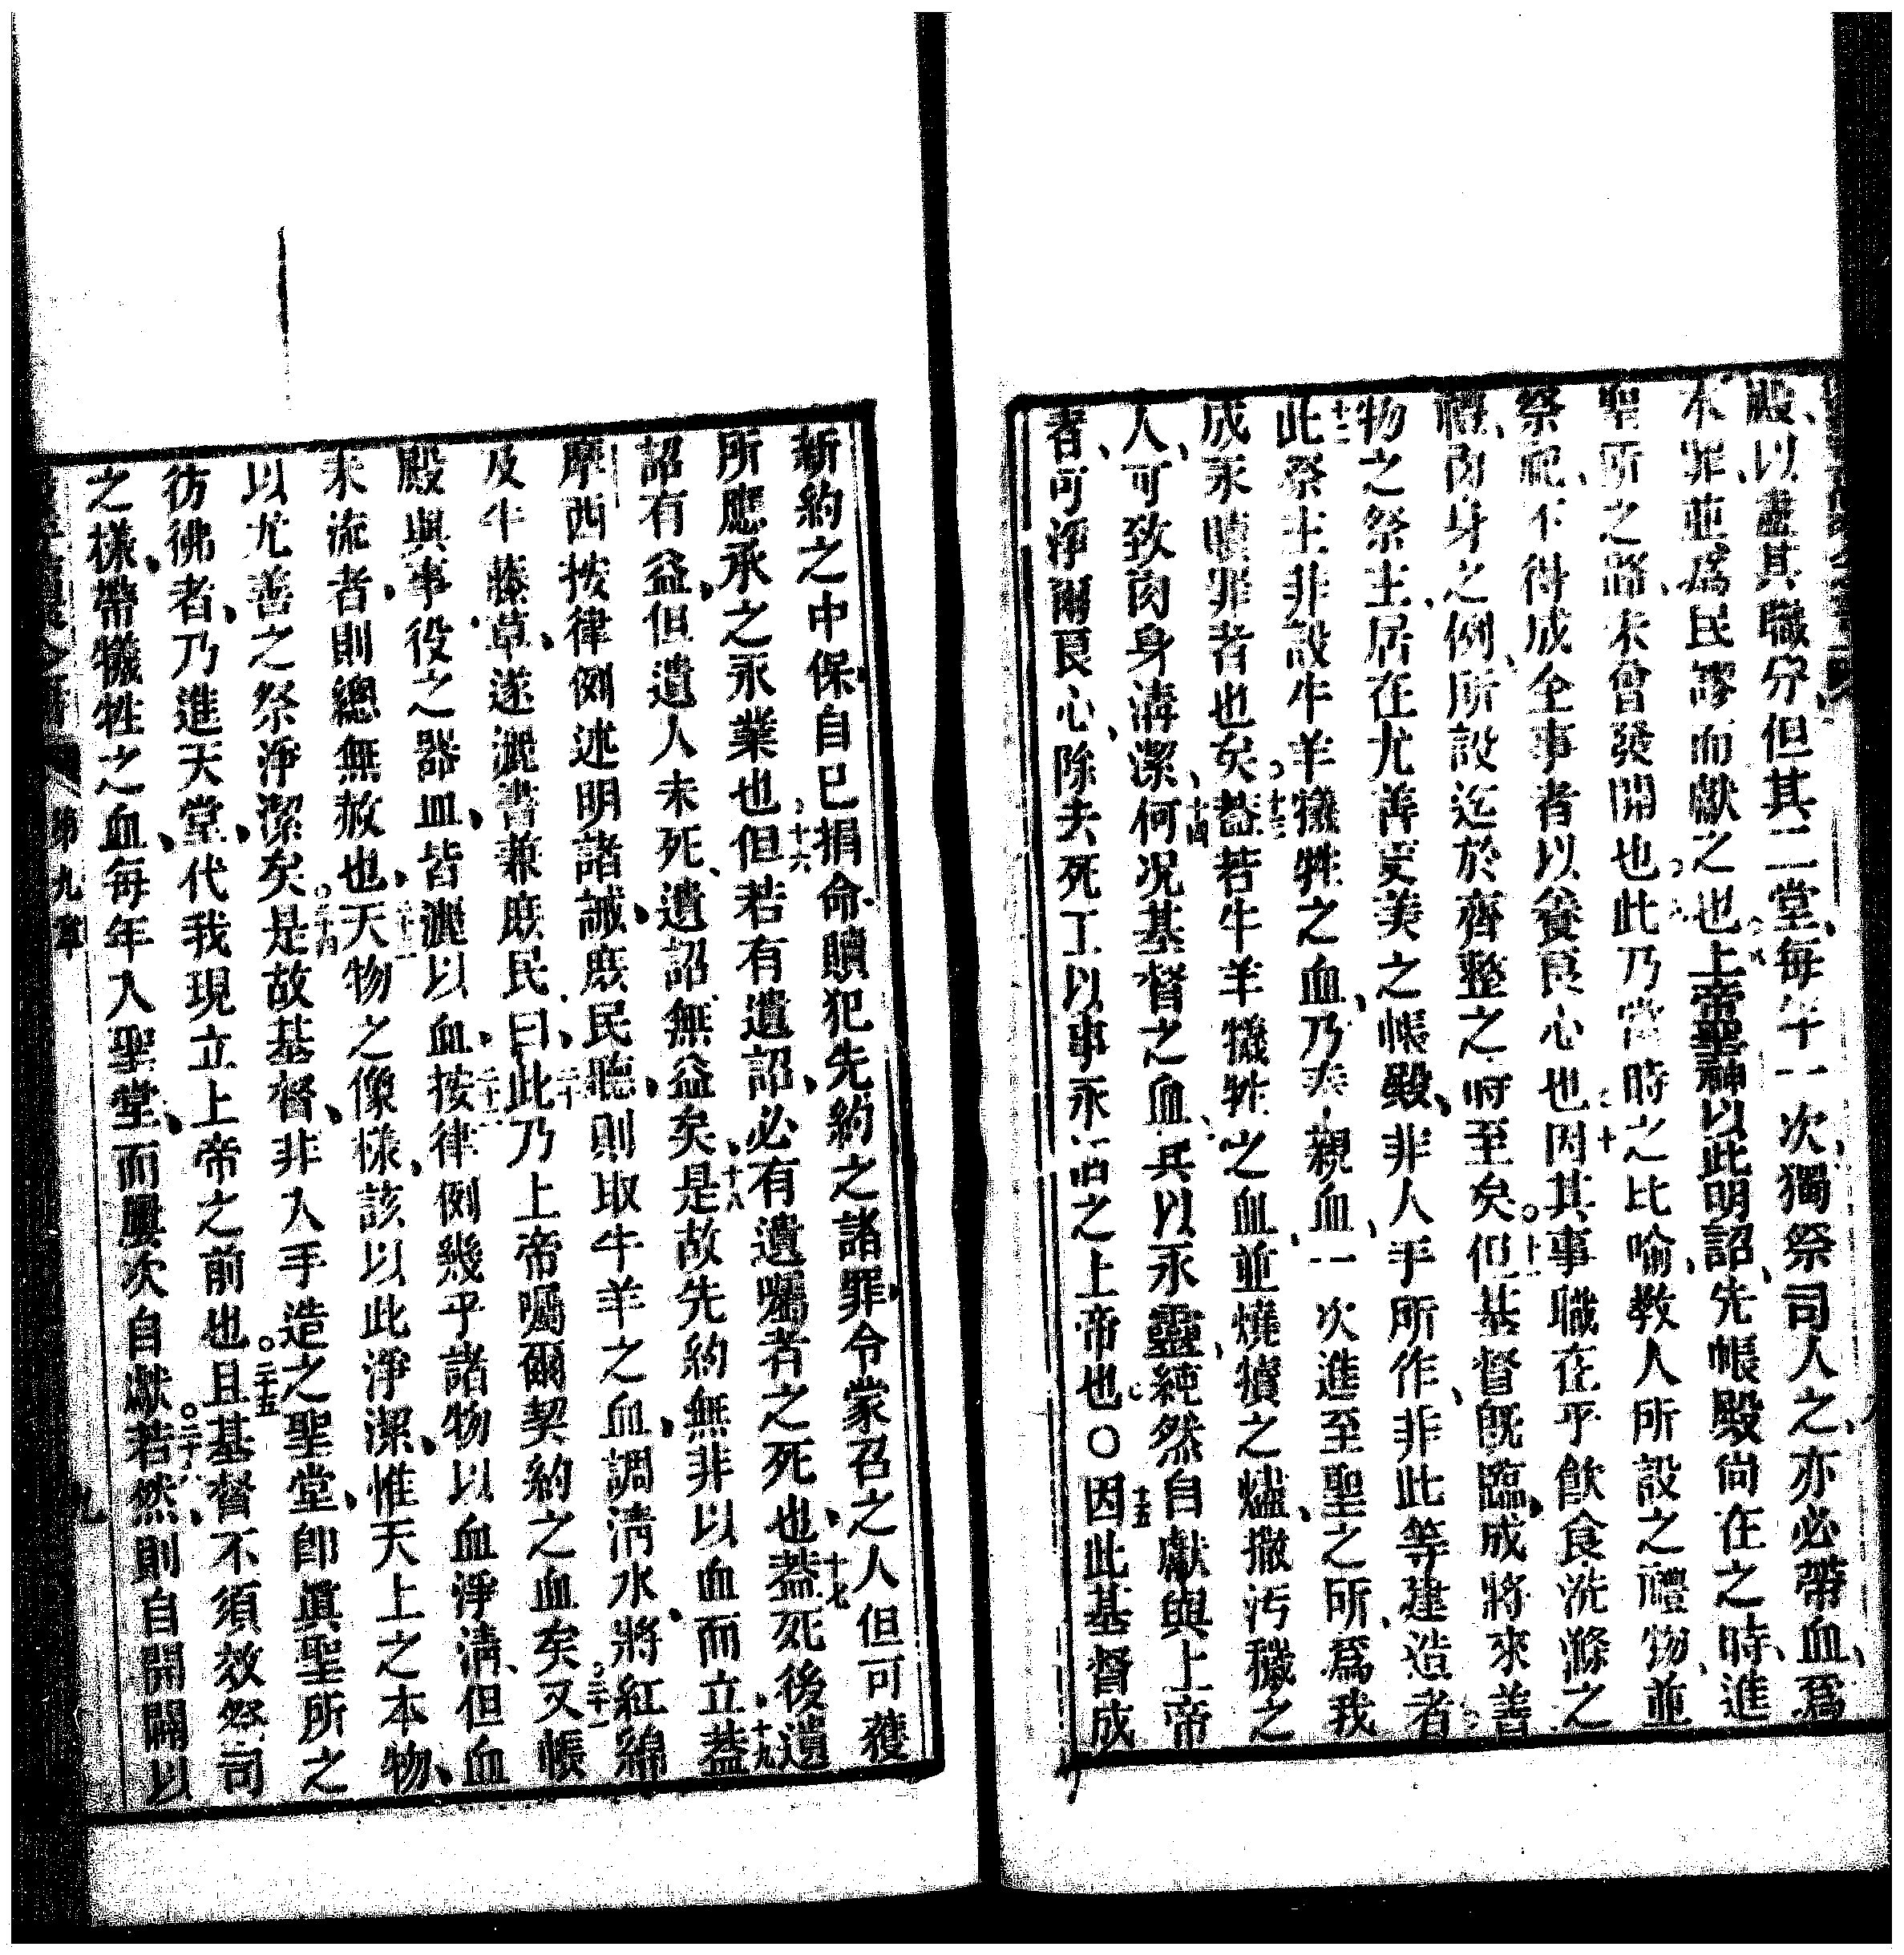 殿、以盡其職分、但其二堂、每年一次、獨祭司人之、亦必帶血、爲
本罪、並爲民謬而獻之也○八上帝聖神以此明詔、先帳殿尚在之時、進
聖所之路、未曾發開也○九此乃當時之比喻、教人所設之禮物、並
祭祀、不得成全事者以養良心也○十因其事職在乎飲食洗滌之
禮、肉身之例、所設迄於齊整之時至矣○十一但基督既臨、成將來善
物之祭主、居在尤善更美之帳殿、非人手所作、非此等建造者
十二此祭主非設牛羊犧牲之血、乃奉親血、一次進至聖之所、爲我
成永贖罪者也矣○十三蓋若牛羊犧牲之血、並燒犢之燼、撒污穢之
人、可致肉身淸潔、十四何况基督之血、其以永靈、純然自獻與上帝
者、可淨爾良心、除去死工以事永活之上帝也○十五因此基督成
新約之中保、自己捐命、贖犯先約之諸罪、令蒙召之人但可獲
所應承之永業也○十六但若有遺詔、必有遺囑者之死也、十七蓋死後遺
詔有益、但遺人未死、遺詔無益矣、十八是故先約無非以血而立、十九蓋
摩西按律例述明諸誡、庶民聽、則取牛羊之血、調淸水、將紅綿
及牛藤草、遂灑書兼庶民、曰、二十此乃上帝囑爾契約之血矣○二十一又帳
殿與事役之器皿、皆灑以血、二十二按律例幾乎諸物以血淨淸、但血
未流者、則總無赦也、二十三天物之像樣、該以此淨潔、惟天上之本物、
以尤善之祭淨潔矣○二十四是故基督、非入手造之聖堂、卽眞聖所之
彷彿者、乃進天堂、代我現立上帝之前也○二十五且基督不須效祭司
之樣、帶犧牲之血、每年入聖堂、而屢次自獻○二十六若然、則自開闢以
第九章
九